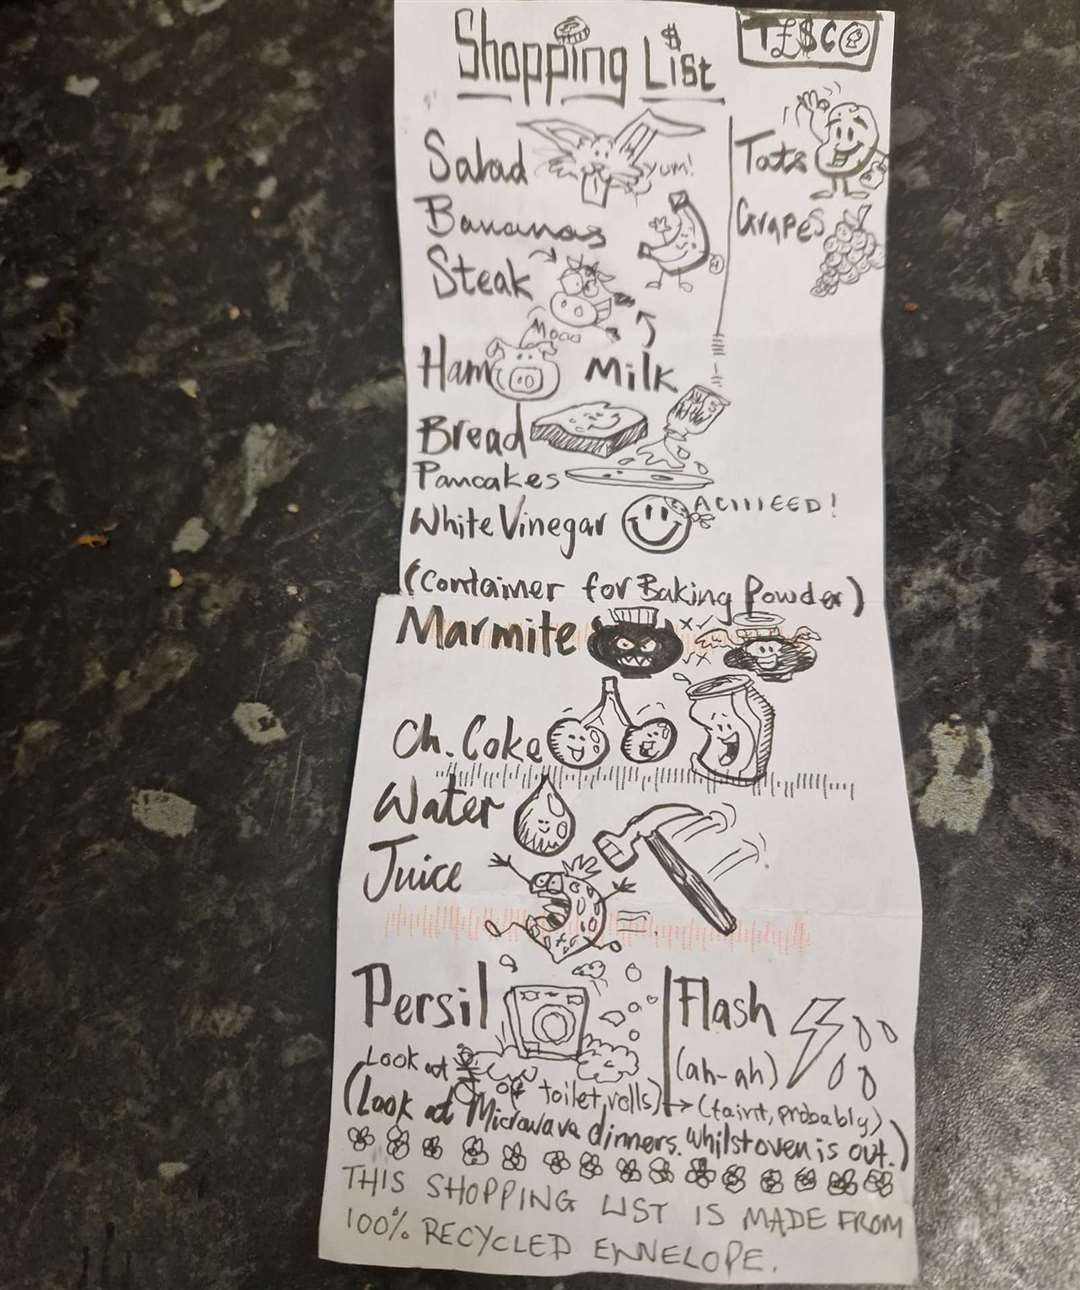 Shopping List
T£$C
Salad
YUM!
Bananas
Steak
Mooo
Ham
Milk
Tats
Grapes
Bread
Pancakes
White Vinegar
ACIIIEED!
(Container for Baking Powder)
Marmite
Ch. Coke
Water
Juice
Persil
Flash
(ah-ah)
Look at
toilet rolls)
(taint, probably)
(Look at Microwave dinners whilst oven is out.)
THIS SHOPPING LIST IS MADE FROM
100% RECYCLED ENNELOPE.